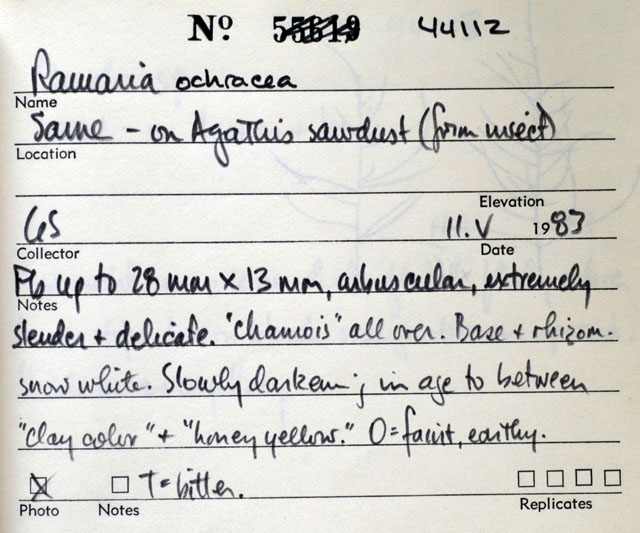 Nº 55619 44112
Ramaria ochracea
Name
Same - on Agathis sawdust (from insect)
Location
Elevation
GS 11.V 1983
Collector Date
Fb up to 28 mm x 13 mm, arbuscular, extremely
Notes
slender + delicate. "Chamois" all over. Base + rhizom.
snow white. Slowly darkening in age to between
"clay color" + "honey yellow." O=faint, earthy.
T=bitter.
Photo Notes Replicates